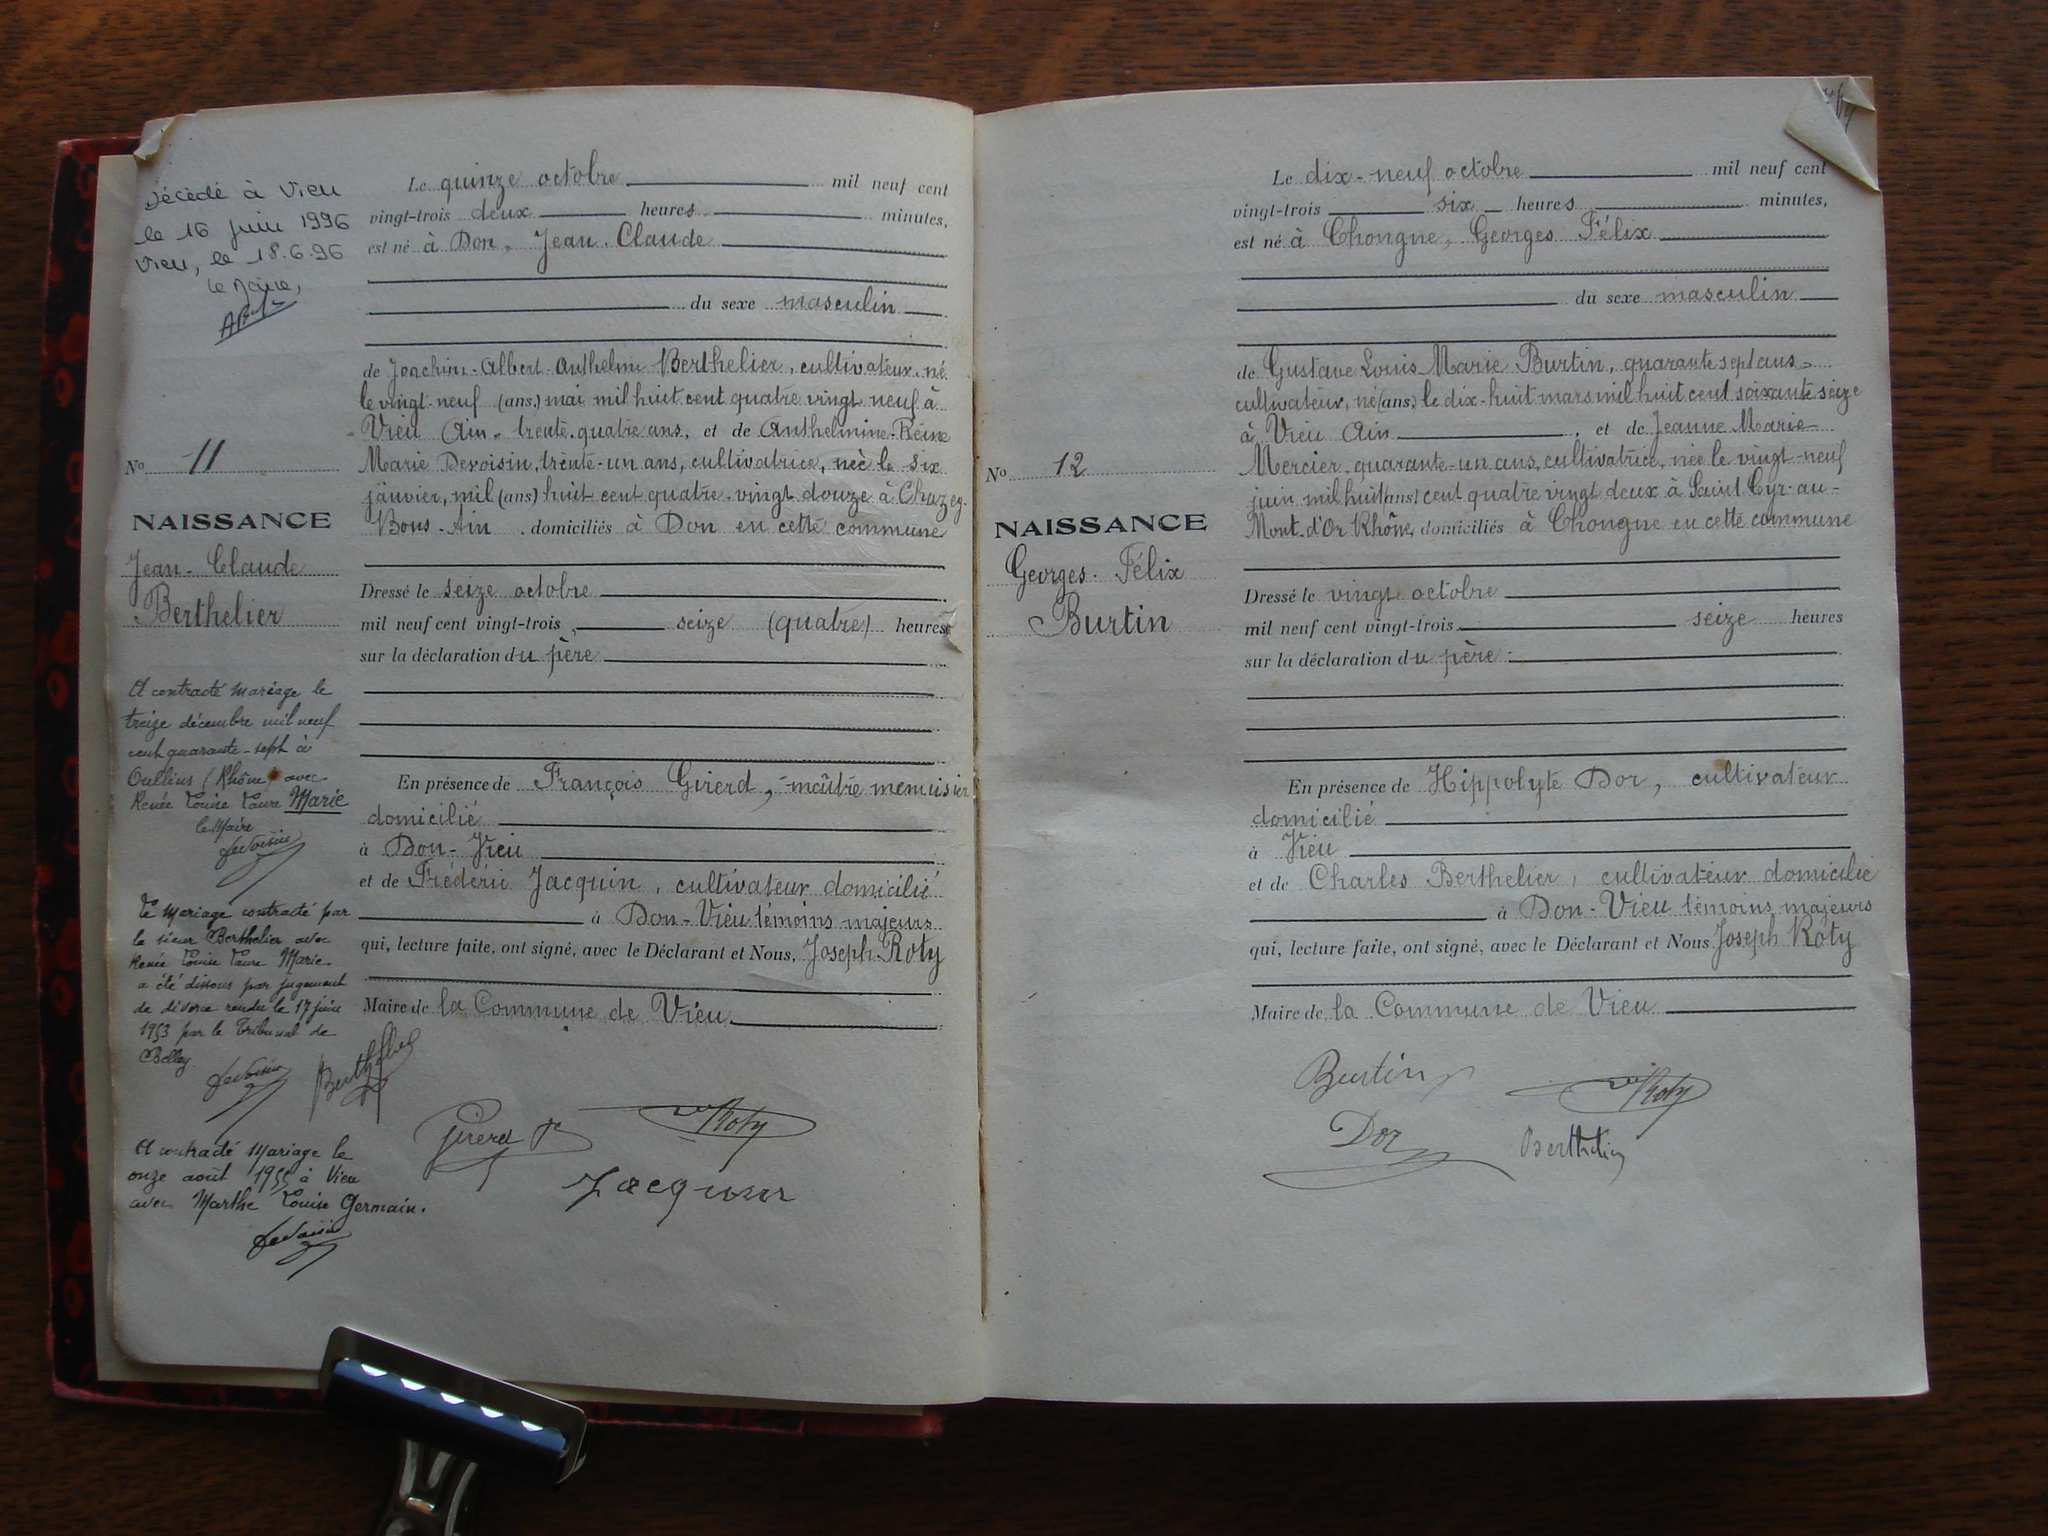 Décédé à Vieu
le 16 juin 1996
Vieu, le 18.6.96
Le Maire,
N° 11
NAISSANCE
Jean-Claude
Berthelier
A contracté mariage le
treize décembre mil neuf
cent quarante-sept à
Oullins (Rhône) avec
Renée Louise Laure Marie
le Maire
Devoisin
Le mariage contracté par
le sieur Berthelier avec
Renée Louise Laure Marie
a été dissous par jugement
de divorce rendu le 17 juin
1953 par le Tribunal de
Belley.
Devoisin
A contracté Mariage le
onze août 1955 à Vieu
avec Marthe Louise Germain.
Devoisin
Le quinze octobre mil neuf cent
vingt-trois deux heures minutes,
est né à Don, Jean-Claude
du sexe masculin
de Joachim-Albert-Anthelme Berthelier, cultivateur, né
le vingt-neuf (ans) mai mil huit cent quatre vingt neuf à
Vieu Ain, trente-quatre ans, et de Anthelmine-Reine
Marie Devoisin, trente-un ans, cultivatrice, née le six
janvier, mil (ans) huit cent quatre-vingt douze à Chazey-
Bons-Ain, domiciliés à Don en cette commune
Dressé le seize octobre
mil neuf cent vingt-trois, seize (quatre) heures
sur la déclaration du père
En présence de François Girerd, maître menuisier
domicilié
à Don-Vieu
et de Frédéric Jacquin, cultivateur domicilié
à Don-Vieu témoins majeurs
qui, lecture faite, ont signé, avec le Déclarant et Nous, Joseph Roty
Maire de la Commune de Vieu
Berthelier
Girerd Roty
Jacquin
Le dix-neuf octobre mil neuf cent
vingt-trois six heures minutes,
est né à Chongne, Georges Félix
du sexe masculin
de Gustave Louis Marie Burtin, quarante sept ans
cultivateur, né (ans) le dix-huit mars mil huit cent soixante seize
à Vieu Ain, et de Jeanne Marie
Mercier, quarante-un ans, cultivatrice, née le vingt-neuf
juin mil huit (ans) cent quatre vingt deux à Saint Cyr-au-
Mont-d'Or Rhône, domiciliés à Chongne en cette commune
N° 12
NAISSANCE
Georges-Félix
Burtin
Dressé le vingt octobre
mil neuf cent vingt-trois seize heures
sur la déclaration du père
En présence de Hippolyte Dor, cultivateur
domicilié
à Vieu
et de Charles Berthelier, cultivateur domicilié
à Don-Vieu témoins majeurs
qui, lecture faite, ont signé, avec le Déclarant et Nous Joseph Roty
Maire de la Commune de Vieu
Burtin Roty
Dor Berthelier